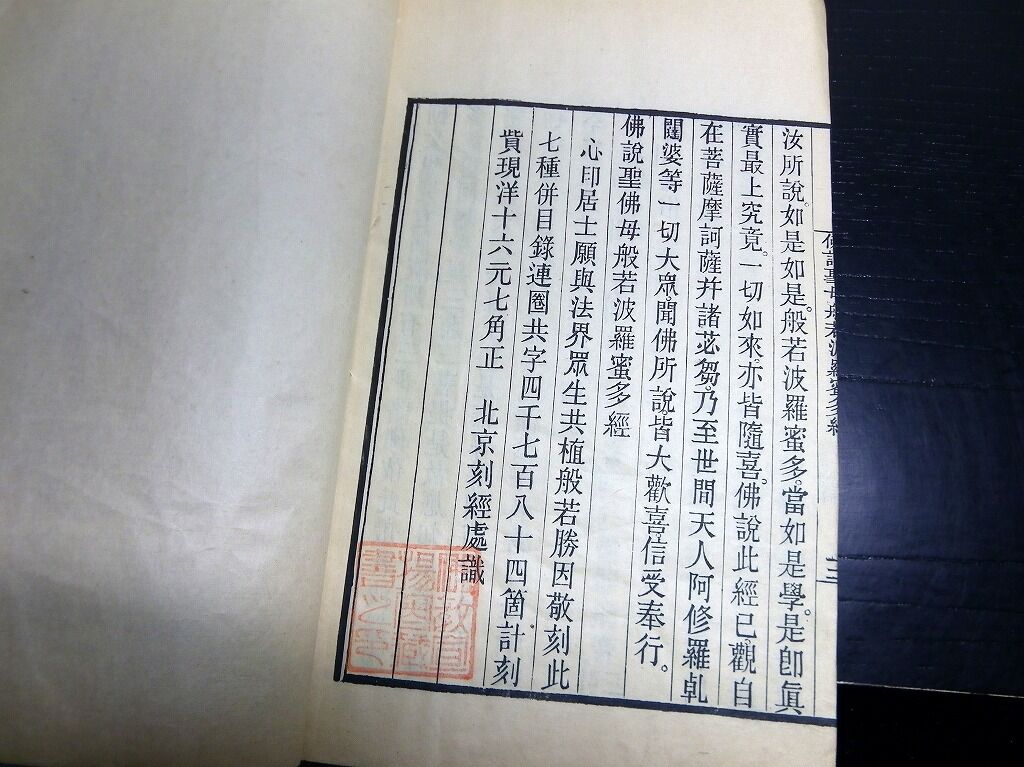 汝所說。如是如是。般若波羅蜜多。當如是學。是卽眞
實最上究竟。一切如來。亦皆隨喜。佛說此經已。觀自
在菩薩摩訶薩幷諸苾芻。乃至世間天人阿修羅乹
闥婆等一切大眾。聞佛所說皆大歡喜信受奉行。
佛說聖佛母般若波羅蜜多經
心印居士願與法界眾生共植般若勝因敬刻此
七種併目錄連圈共字四千七百八十四箇計刻
貲現洋十六元七角正 北京刻經處識
佛說聖佛母般若波羅蜜多經